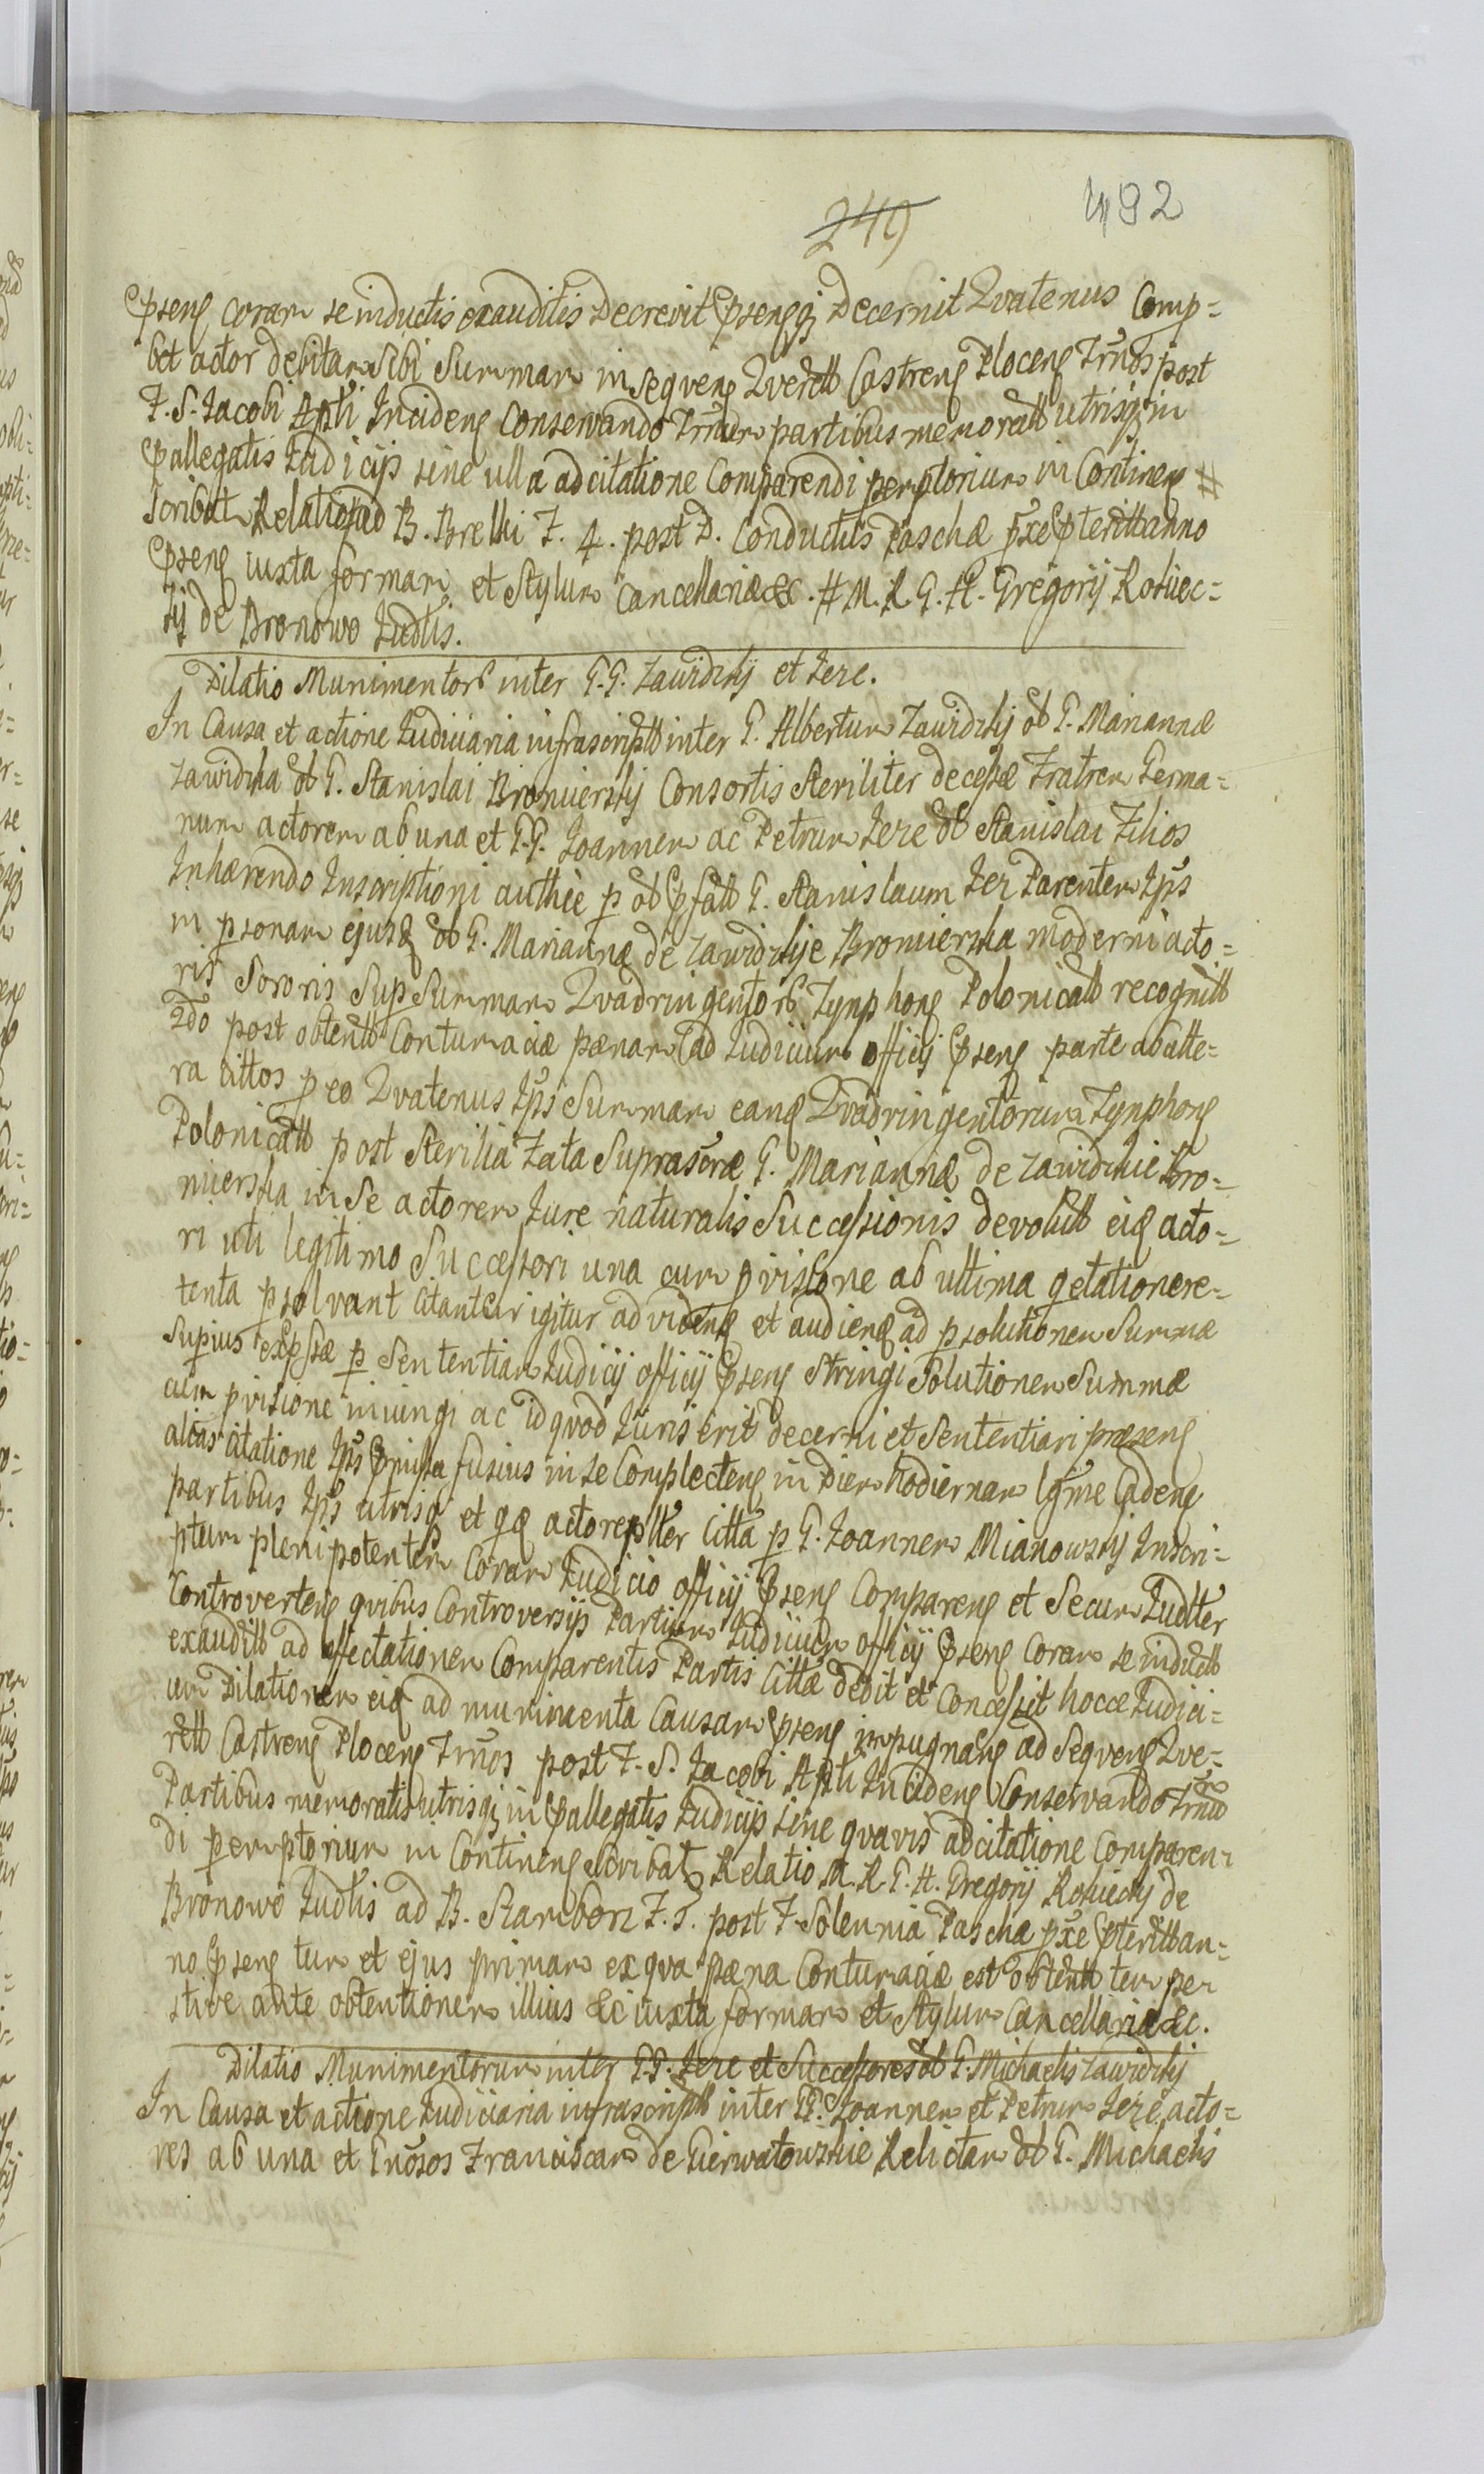 249
492
Pseng coram se inductis exauditis Decrevit Psengq Decernit Qvatenus Comp=
bet actor debitam Sibi Summam in Seqveng Qverell Castreng Ploceng Trnos post
F. S. Jacobi Apli Incideng Conservando Trnum partibus memoratt utrisq in
Pallegatis Judicijs sine ulla adcitatione Comparendi peremptorium in Contineng #
Scribat Relatio ad B. Brelki F. 4. post D. Conductus Paschæ pxe Pteritt anno
Pseng iuxta formam et Stylum Cancellariæ &c. # M. R. G. H. Gregorij Rościec=
kij de Bronowo Judlis.
Dilatio Munimentorum inter G.G. Zawidzkij et Jeze.
In Causa et actione Judiciaria infrascriptt inter G. Albertum Zawidzkij ol G. Mariannæ
Zawidzka ol G. Stanislai Bromierskij Consortis Steriliter decessæ Fratrem Germa=
num actorem ab una et G.G. Joannem ac Petrum Jeze ol Stanislai Filios
Inhærendo Inscriptioni authce p ol Pfatt G. Stanislaum Jez Parentem Ips
in psonam ejusd ol G. Mariannæ de Zawidzkije Bromierska moderni acto=
ris Sororis Sup Summam Qvadringentorum Tynphong Polonicall recognitt
2do post obtentt Contumaciæ pænam ad Judicium officij Pseng parte ab alte=
ra cittos p eo Qvatenus Ipsi Summam eand Qvadringentorum Tynphong
Polonicall post Sterilia Fata Suprascræ G. Mariannæ de Zawidzkie Bro=
mierska in Se actorem Jure naturalis Successionis devolutt eid acto=
ri uti legitimo Successori una cum pvisione ab ultima qetatione re=
tenta psolvant Citantur igitur ad videng et audieng ad psolutionem Summæ
Supius expssæ p Sententiam Judicij officij Pseng Stringi Solutionem Summæ
cum pvisione iniungi ac id qvod Juris erit decerni et Sententiari præseng
alias Citatione Ips Pmissa fusius in se Complecteng in Diem hodiernam lgme Cadeng
partibus Ips utrisq et qd actorea pller Citta p G. Joannem Mianowskij Inscri=
ptum plenipotentem Coram Judicio officij Pseng Compareng et Secum Judlter
Controverteng qvibus Controversijs Partium Judicium officij Pseng Coram se inductt
exauditt ad affectationem Comparentis Partis Cittæ dedit et Concessit hocce Judici=
um Dilationem eid ad munimenta Causam Pseng impugnang ad Seqveng Qve=
rell Castreng Ploceng Trnos post F. S. Jacobi Apli Incideng Conservando Trnum
Partibus memoratis utrisq in Pallegatis Judicijs Sine qvavis adcitatione Comparen=
di peremptorium in Contineng Scribat Relatio M. R. G. H. Gregorij Rościeckij de
Bronowo Judlis ad B. Starzborz F. 5. post F. Solennia Paschæ pxe Pteritt an=
no Pseng tum et ejus primam ex qva pæna Contumaciæ est obtentt tempe
stive ante obtentionem illius &c iuxta formam et Stylum Cancellariæ &c.
Dilatio Munimentorum inter G.G. Jeze et Successores ol G. Michaelis Zawidzkij
In Causa et actione Judiciaria infrascriptt inter GG. Joannem et Petrum Jeze acto=
res ab una et Gnosos Franciscam de Gierwatowskie Relictam ol G. Michaelis